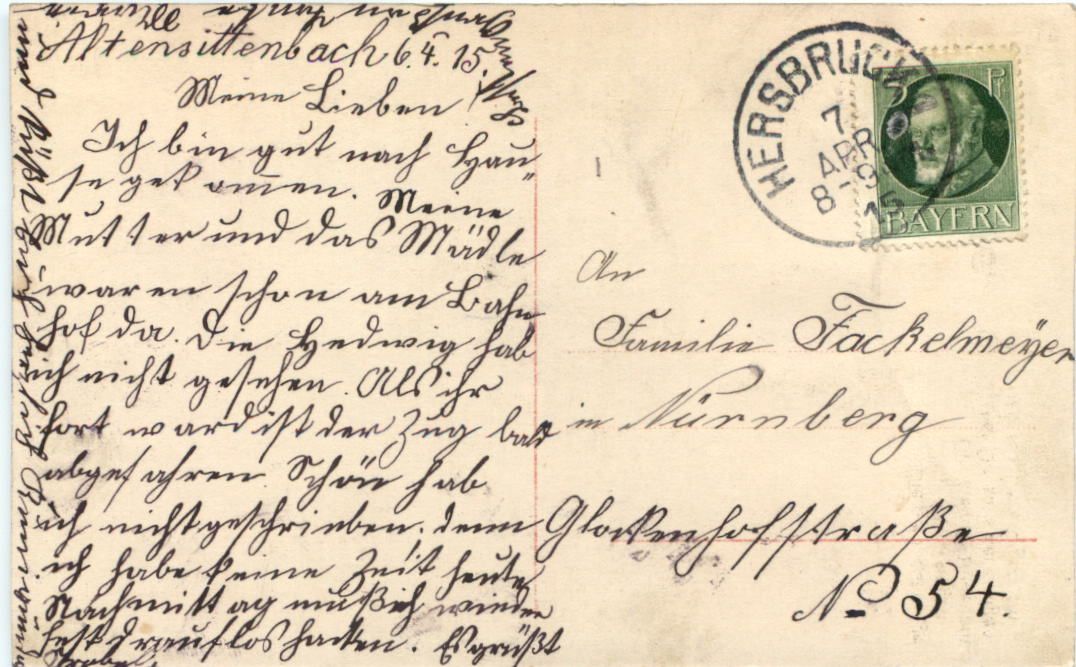 Altensittenbach 6.4.15.
Meine Lieben
Ich bin gut nach Hau-
se gekommen. Meine
Mutter und das Mädle
waren schon am Bahn
hof da. Die Hedwig hab
ich nicht gesehen. Als ihr
fort ward ist der Zug bald
abgefahren Schön hab
ich nicht geschrieben. denn
ich habe keine Zeit heute
Nachmittag muß ich wieder
fest drauflos hacken. Es grüßt
und küßt Euch
HERSBRUCK
7
APR
8-9
15
5 Pf
BAYERN
An
Familie Fackelmeyer
in Nürnberg
Glockenhofstraße
No 54.